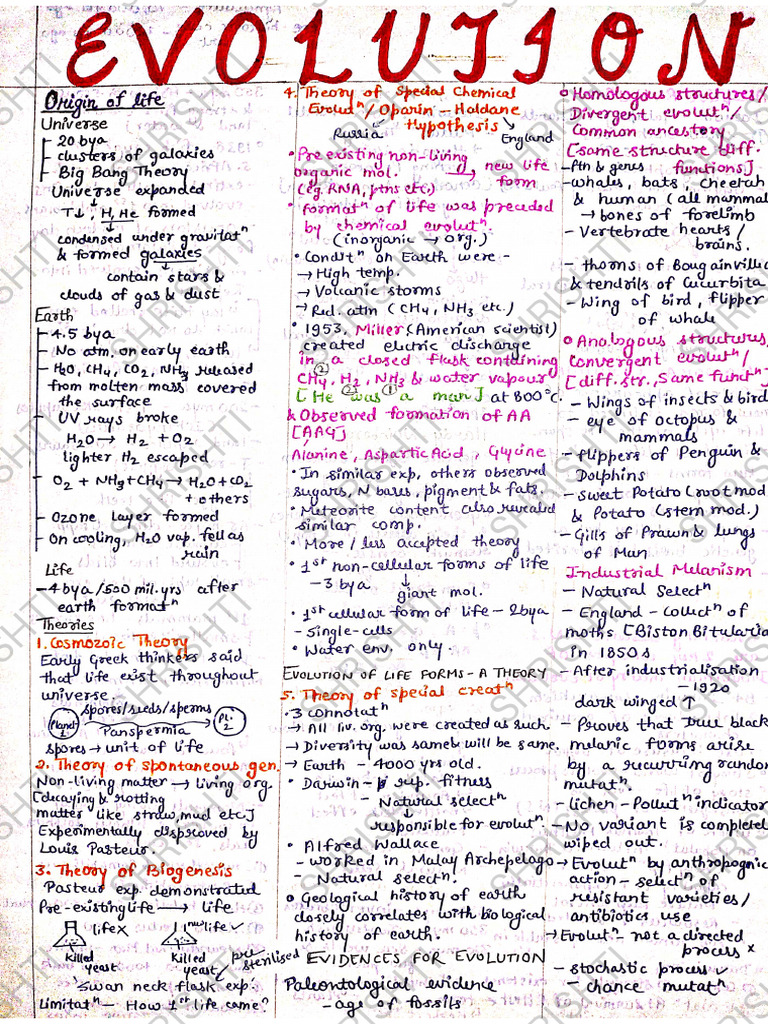 EVOLUTION
Origin of life
Universe
- 20 bya
- clusters of galaxies
- Big Bang Theory
Universe expanded
↓
T↓, H, He formed
↓
condensed under gravitatⁿ
& formed galaxies
↓
contain stars &
clouds of gas & dust
Earth
- 4.5 bya
- No atm. on early earth
- H₂O, CH₄, CO₂, NH₃ released
from molten mass covered
the surface
- UV rays broke
H₂O → H₂ + O₂
lighter H₂ escaped
- O₂ + NH₃ + CH₄ → H₂O + CO₂
+ others
- Ozone layer formed
- On cooling, H₂O vap. fell as
rain
Life
- 4 bya / 500 mil. yrs after
earth formatⁿ
Theories
1. Cosmozoic Theory
Early Greek thinkers said
that life exist throughout
universe.
Planet 1 spores/seeds/sperms → Pl. 2
Panspermia
spores → unit of life
2. Theory of spontaneous gen.
Non-living matter → living org.
[decaying & rotting
matter like straw, mud etc]
Experimentally disproved by
Louis Pasteur.
3. Theory of Biogenesis
Pasteur exp. demonstrated
Pre-existing life → life
life × new life ✓
Killed yeast Killed yeast pre-sterilised
Swan neck flask exp.
Limitatⁿ - How 1st life came?
4. Theory of Special Chemical
Evolutⁿ / Oparin - Haldane
Hypothesis
Russia England
• Pre existing non-living
organic mol. → new life
(eg RNA, ptns etc) form
• formatⁿ of life was preceded
by chemical evolutⁿ.
(inorganic → org.)
• Condtⁿ on Earth were -
→ High temp.
→ Volcanic storms
→ Red. atm (CH₄, NH₃ etc.)
• 1953, Miller (American scientist)
created electric discharge
in a closed flask containing
② CH₄, H₂, NH₃ & water vapour
② ①
[He was a man] at 800°C.
& Observed formation of AA
[AAG]
Alanine, Aspartic Acid, Glycine
• In similar exp, others observed
sugars, N bases, pigment & fats.
• Meteorite content also revealed
similar comp.
• More / less accepted theory
• 1st non-cellular forms of life
- 3 bya ↓
giant mol.
• 1st cellular form of life - 2bya
- Single-cells
• Water env. only.
EVOLUTION OF LIFE FORMS - A THEORY
5. Theory of special creatⁿ
• 3 connotatⁿ
→ All liv. org. were created as such.
→ Diversity was same & will be same.
→ Earth - 4000 yrs old.
• Darwin - rep. fitness
- Natural selectⁿ
↓
responsible for evolutⁿ.
• Alfred Wallace
- worked in Malay Archepelago
- Natural selectⁿ.
• Geological history of earth
closely correlates with biological
history of earth.
EVIDENCES FOR EVOLUTION
Paleontological evidence
- age of fossils
Homologous structures /
Divergent evolutⁿ /
Common ancestory
[same structure diff.
functions]
- Ptn & genes
- whales, bats, cheetah
& human (all mammal
→ bones of forelimb
- Vertebrate hearts /
brains.
- thorns of Bougainvillia
& tendrils of Cucurbita
- Wing of bird, flipper
of whale
Analogous structures,
Convergent evolutⁿ /
[diff. str., Same functⁿ]
- Wings of insects & bird
- eye of octopus &
mammals
- flippers of Penguin &
Dolphins
- sweet Potato (root mod
& Potato (stem mod.)
- Gills of Prawn & lungs
of Man
Industrial Melanism
- Natural Selectⁿ
- England - collectⁿ of
moths [Biston Bitularia
in 1850s
- After industrialisation
- 1920
dark winged ↑
- Proves that true black
melanic forms arise
by a recurring random
mutatⁿ.
- lichen - Pollutⁿ indicator
- No variant is completely
wiped out.
→ Evolutⁿ by anthropognic
action - selectⁿ of
resistant varieties /
antibiotics use
→ Evolutⁿ - not a directed
process ×
- stochastic process ✓
- chance mutatⁿ
SHRISHTI